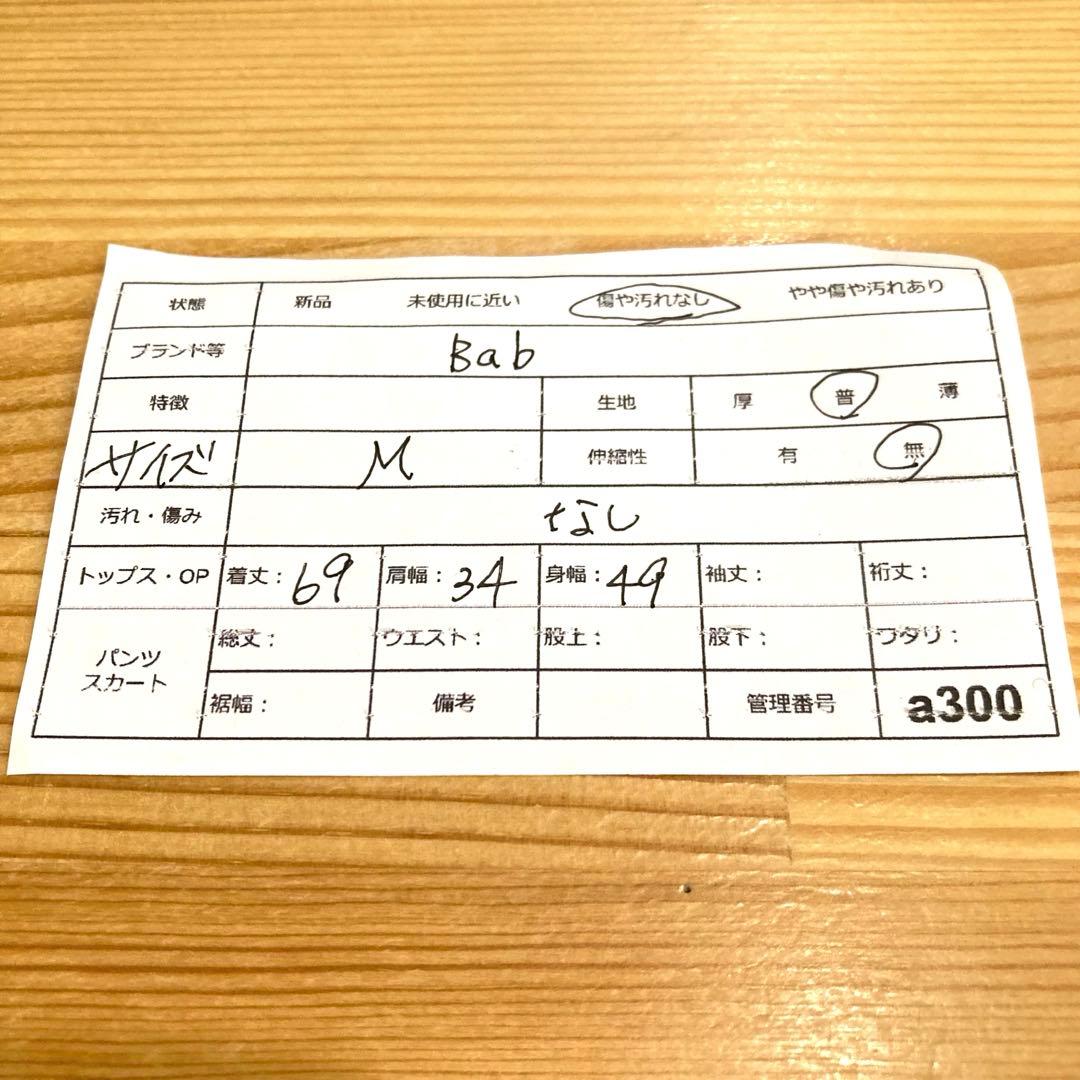 状態 新品 未使用に近い 傷や汚れなし やや傷や汚れあり
ブランド等 Bab
特徴 生地 厚 普 薄
サイズ M 伸縮性 有 無
汚れ・傷み なし
トップス・OP 着丈：69 肩幅：34 身幅：49 袖丈： 裄丈：
パンツ スカート 総丈： ウエスト： 股上： 股下： ワタリ：
裾幅： 備考 管理番号 a300